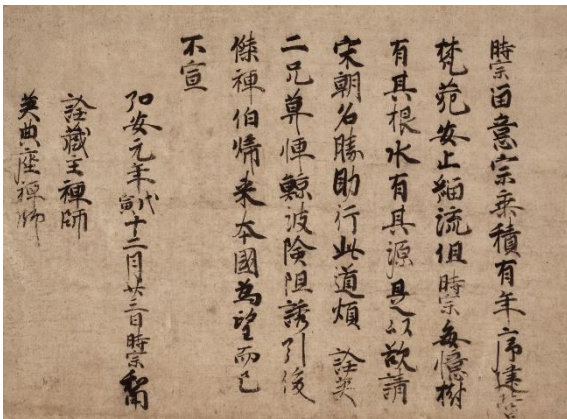 時宗留意宗乘積有年序建營
梵苑安止緇流但時宗每憶樹
有其根水有其源是以欲請
宋朝名勝助行此道煩 詮英
二兄莫憚鯨波險阻誘引俊
傑禪伯歸來本國為望而已
不宣
弘安元年戊寅十二月廿三日時宗和南
詮藏主禪師
英典座禪師